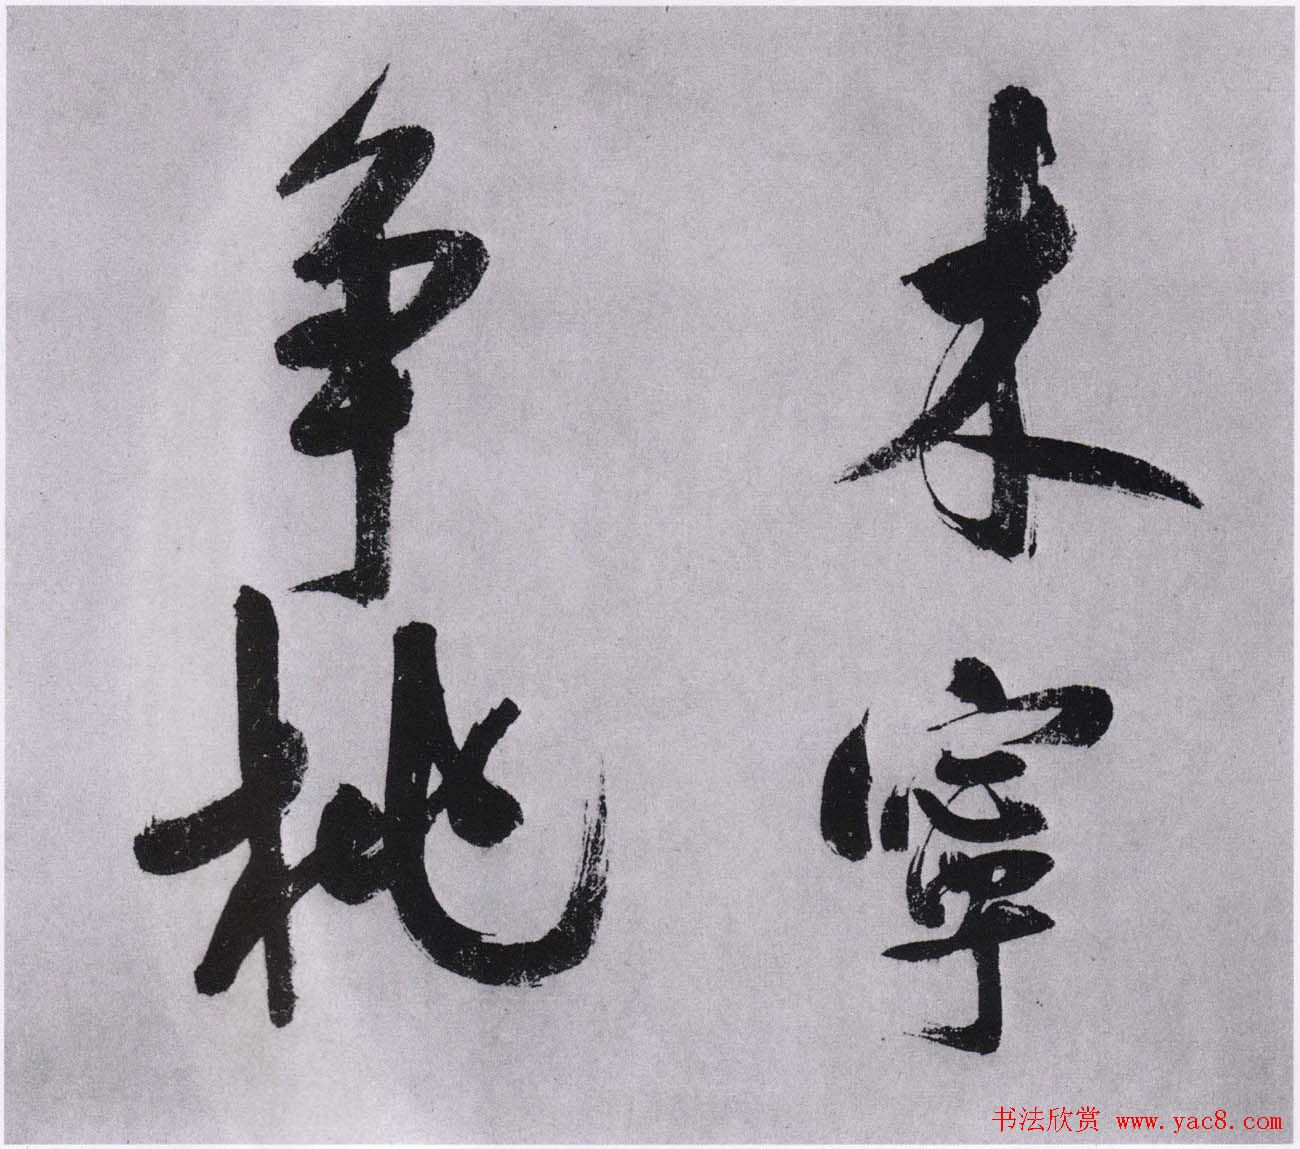 木寧
争桃
书法欣赏 www.yac8.com